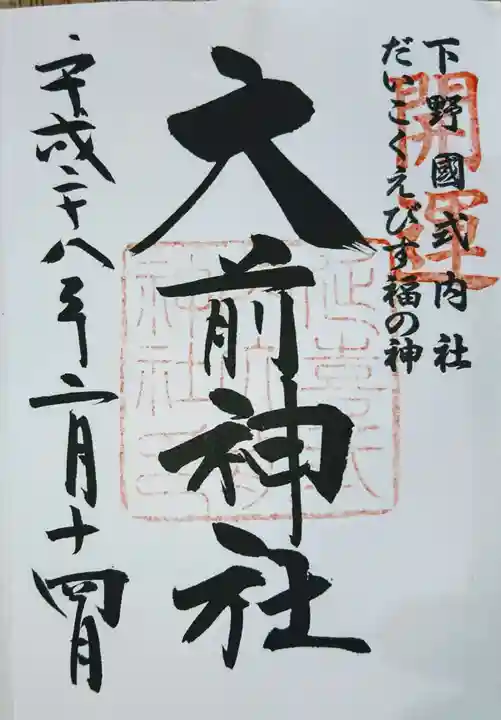 開運
下野國式内社
だいこくえびす福の神
大前神社
平成二十八年二月十四日